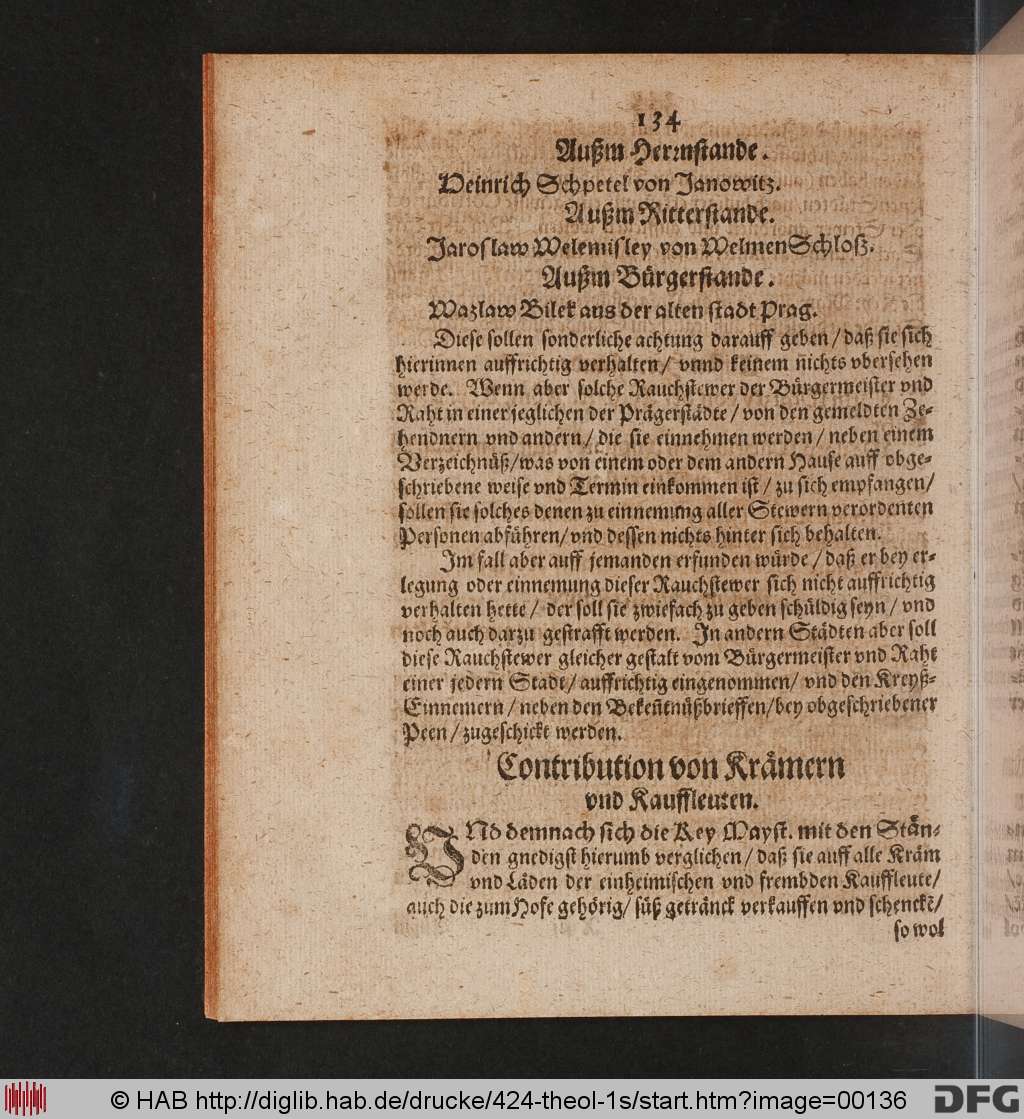 134
Außm Herrnstande.
Heinrich Schpetel von Janowitz.
Außm Ritterstande.
Jaroslaw Welemisley von Welmen Schloß.
Außm Bürgerstande.
Wazlaw Bilek aus der alten stadt Prag.
Diese sollen sonderliche achtung darauff geben / daß sie sich
hierinnen auffrichtig verhalten / vnnd keinem nichts vbersehen
werde. Wenn aber solche Rauchstewer der Bürgermeister vnd
Raht in einer jeglichen der Prägerstädte / von den gemeldten Ze-
hendnern vnd andern / die sie einnehmen werden / neben einem
Verzeichnüß / was von einem oder dem andern Hause auff obge-
schriebene weise vnd Termin einkommen ist / zu sich empfangen /
sollen sie solches denen zu einnemung aller Stewern verordenten
Personen abführen / vnd dessen nichts hinter sich behalten.
Im fall aber auff jemanden erfunden würde / daß er bey er-
legung oder einnemung dieser Rauchstewer sich nicht auffrichtig
verhalten hette / der soll sie zwiefach zu geben schüldig seyn / vnd
noch auch darzu gestrafft werden. In andern Städten aber soll
diese Rauchstewer gleicher gestalt vom Bürgermeister vnd Raht
einer jedern Stadt / auffrichtig eingenommen / vnd den Kreyß-
Einnemern / neben den Bekeñtnüßbrieffen / bey obgeschriebener
Peen / zugeschickt werden.
Contribution von Krämern
vnd Kauffleuten.
VNd demnach sich die Key Mayst. mit den Stän-
den gnedigst hierumb verglichen / daß sie auff alle Kräm
vnd Läden der einheimischen vnd frembden Kauffleute /
auch die zum Hofe gehörig / süß getränck verkauffen vnd schenckẽ /
so wol
© HAB http://diglib.hab.de/drucke/424-theol-1s/start.htm?image=00136
DFG